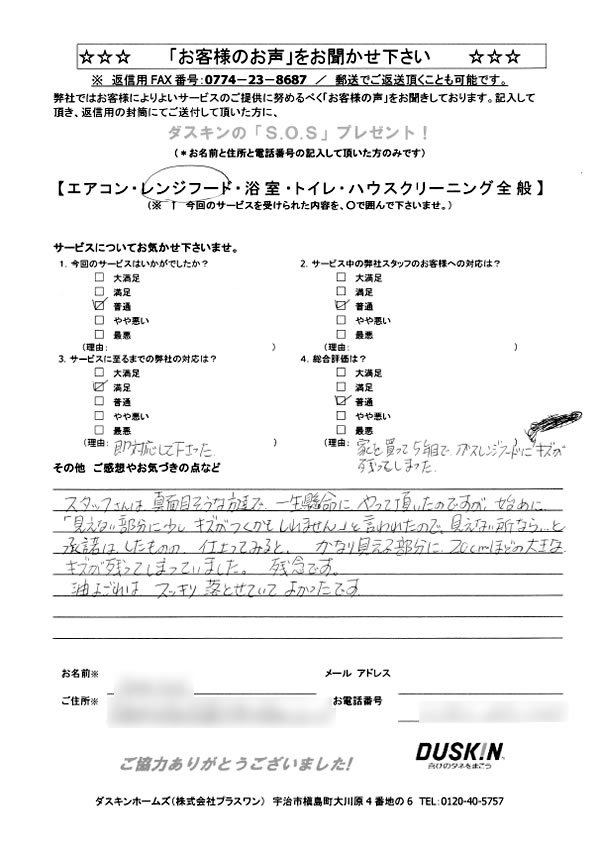 ☆☆☆ 「お客様のお声」をお聞かせ下さい ☆☆☆
※ 返信用FAX番号:0774-23-8687 / 郵送でご返送頂くことも可能です。
弊社ではお客様によりよいサービスのご提供に努めるべく「お客様の声」をお聞きしております。記入して
頂き、返信用の封筒にてご送付して頂いた方に、
ダスキンの「S.O.S」プレゼント!
(*お名前と住所と電話番号の記入して頂いた方のみです)
【エアコン・レンジフード・浴室・トイレ・ハウスクリーニング全般】
(※ ↑ 今回のサービスを受けられた内容を、○で囲んで下さいませ。)
サービスについてお気かせ下さいませ。
1. 今回のサービスはいかがでしたか?
□ 大満足
□ 満足
☑ 普通
□ やや悪い
□ 最悪
(理由: )
2. サービス中の弊社スタッフのお客様への対応は?
□ 大満足
□ 満足
☑ 普通
□ やや悪い
□ 最悪
(理由: )
3. サービスに至るまでの弊社の対応は?
□ 大満足
☑ 満足
□ 普通
□ やや悪い
□ 最悪
(理由: 即対応して下さった )
4. 総合評価は?
□ 大満足
□ 満足
☑ 普通
□ やや悪い
□ 最悪
(理由: 家を買って5年目で、ガスレンジフードにキズが )
残ってしまった.
その他 ご感想やお気づきの点など
スタッフさんは、真面目そうな方達で、一生懸命に、やって頂いたのですが、始めに
「見えない部分に少しキズがつくかもしれません」と言われたので、見えない所なら…と
承諾はしたものの、仕上ってみると、かなり見える部分に、20cmほどの大きな
キズが残ってしまっていました。残念です。
油よごれは スッキリ落とせていて よかったです
お名前※
メール アドレス
ご住所※
お電話番号
ご協力ありがとうございました!
DUSKIN
喜びのタネをまこう
ダスキンホームズ(株式会社プラスワン) 宇治市槇島町大川原4番地の6 TEL:0120-40-5757